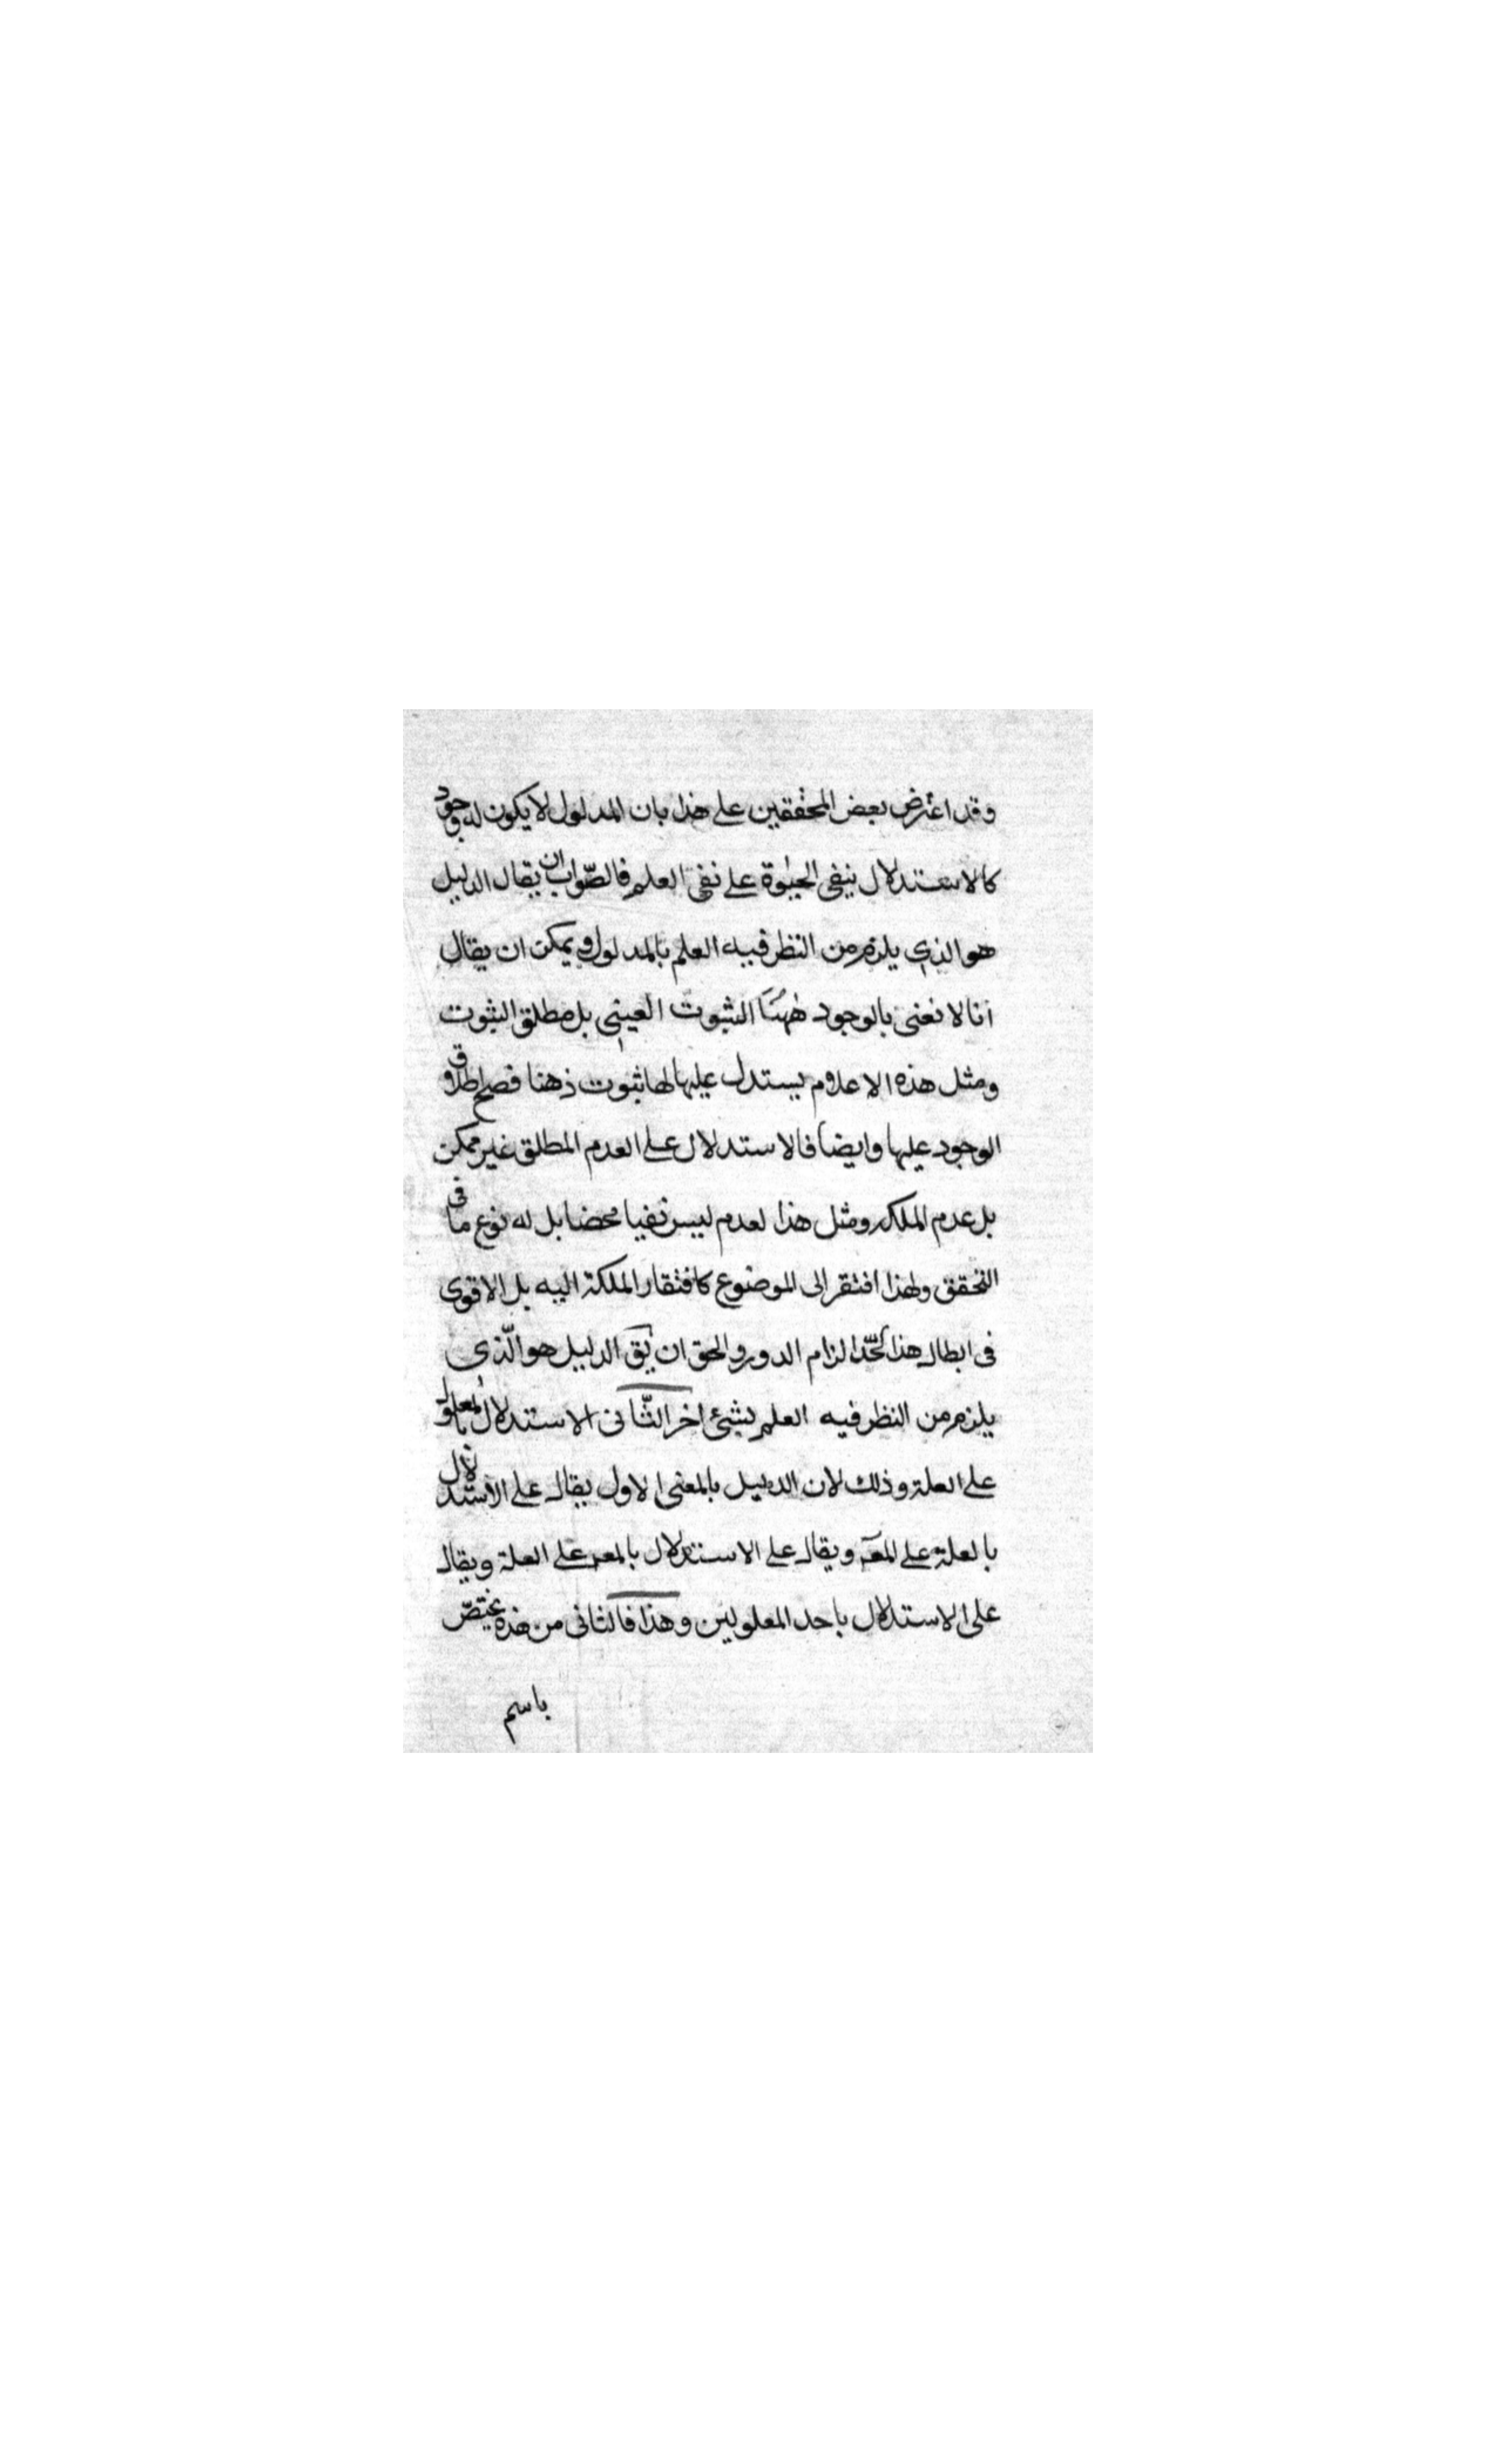 وقد اعترض بعض المحققين على هذا بان المدلول لا يكون له وجود
كالاستدلال بنفى الحيوة على نفى العلم فالصّواب ان يقال الدليل
هو الذي يلزم من النظر فيه العلم بالمدلول ويمكن ان يقال
انا لا نعنى بالوجود ههنا الثبوت العينى بل مطلق الثبوت
ومثل هذه الاعلام يستدل عليها لها ثبوت ذهنا فصح اطلاق
الوجود عليها وايضا فالاستدلال على العدم المطلق غير ممكن
بل عدم الملكة ومثل هذا لعدم ليس نفيا محضا بل له نوع ما فى
التحقق ولهذا افتقر الى الموضوع كافتقار الملكة اليه بل الاقوى
فى ابطال هذا الحّد الزام الدور والحق ان يق الدليل هو الّذي
يلزم من النظر فيه العلم بشئ اخر الثّانى الاستدلال بالمعلول
على العلة وذلك لان الدليل بالمعنى الاول يقال على الاستدلال
بالعلة على المعـ ويقال على الاستدلال بالمعـ على العلة ويقال
على الاستدلال باحد المعلولين وهذا فالثانى من هذه يختصّ
باسم